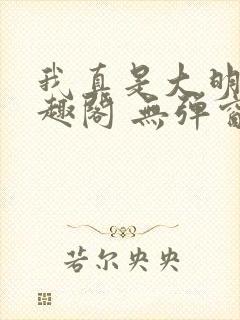 我真是大明
趣阁 無弹窗
若尔央央